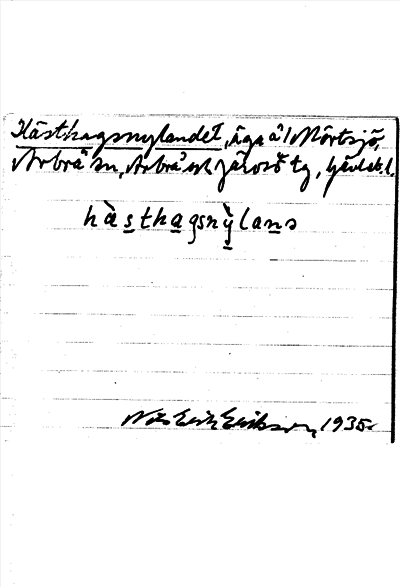 Hästhagsnylandet, äga å 1 Mörtsjö,
Arbrå sn, Arbrå och Järvsö tg, Gävleb. l.
hàsthagsnỳlans
Nils Erik Eriksson, 1935.